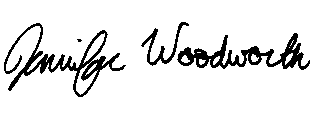 Jennifer Woodworth